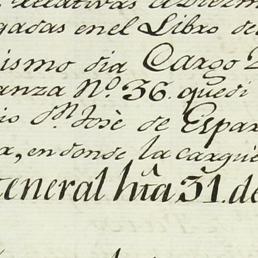 relativas
gadas en el Libro de
ismo dia Cargo
anza N.º 36. quedi
io D.n José de Espar
, en donde la cargue
eneral hta 31. de